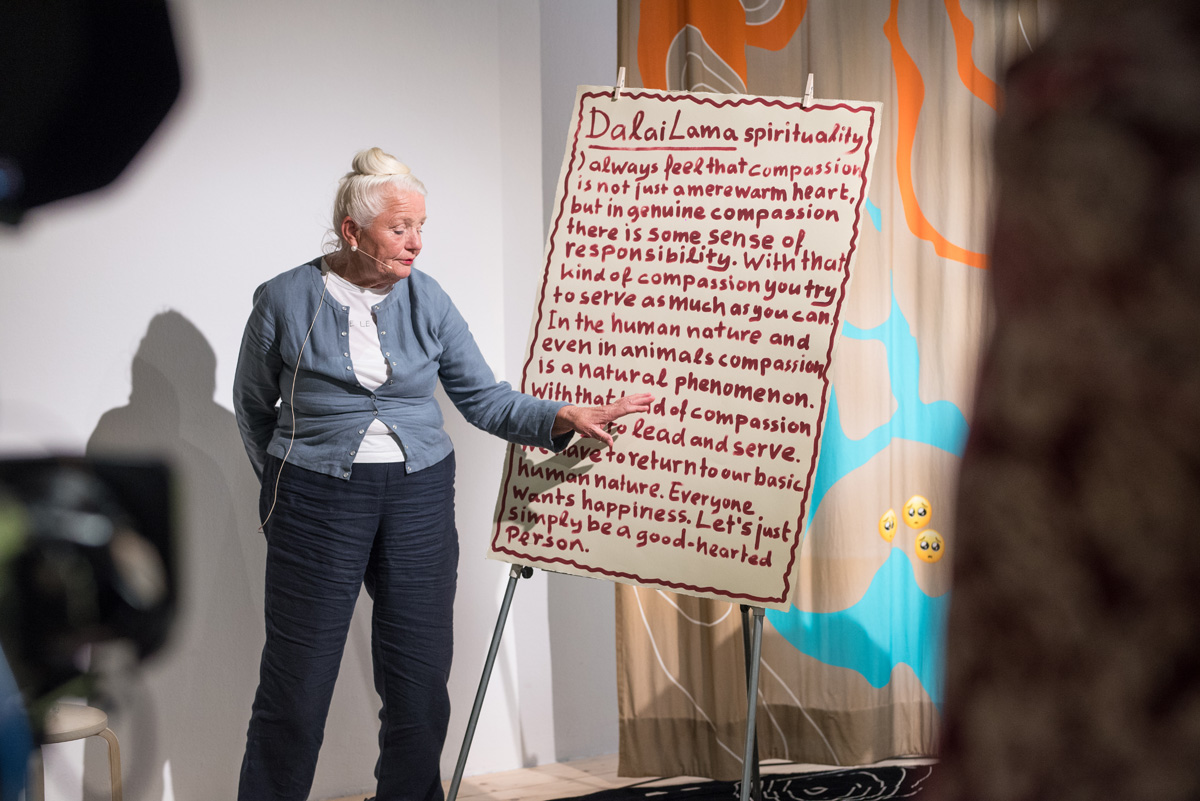 Dalai Lama spirituality
I always feel that compassion
is not just a mere warm heart,
but in genuine compassion
there is some sense of
responsibility. With that
kind of compassion you try
to serve as much as you can.
In the human nature and
even in animals compassion
is a natural phenomenon.
With that kind of compassion
to lead and serve.
We have to return to our basic
human nature. Everyone
wants happiness. Let's just
simply be a good-hearted
Person.